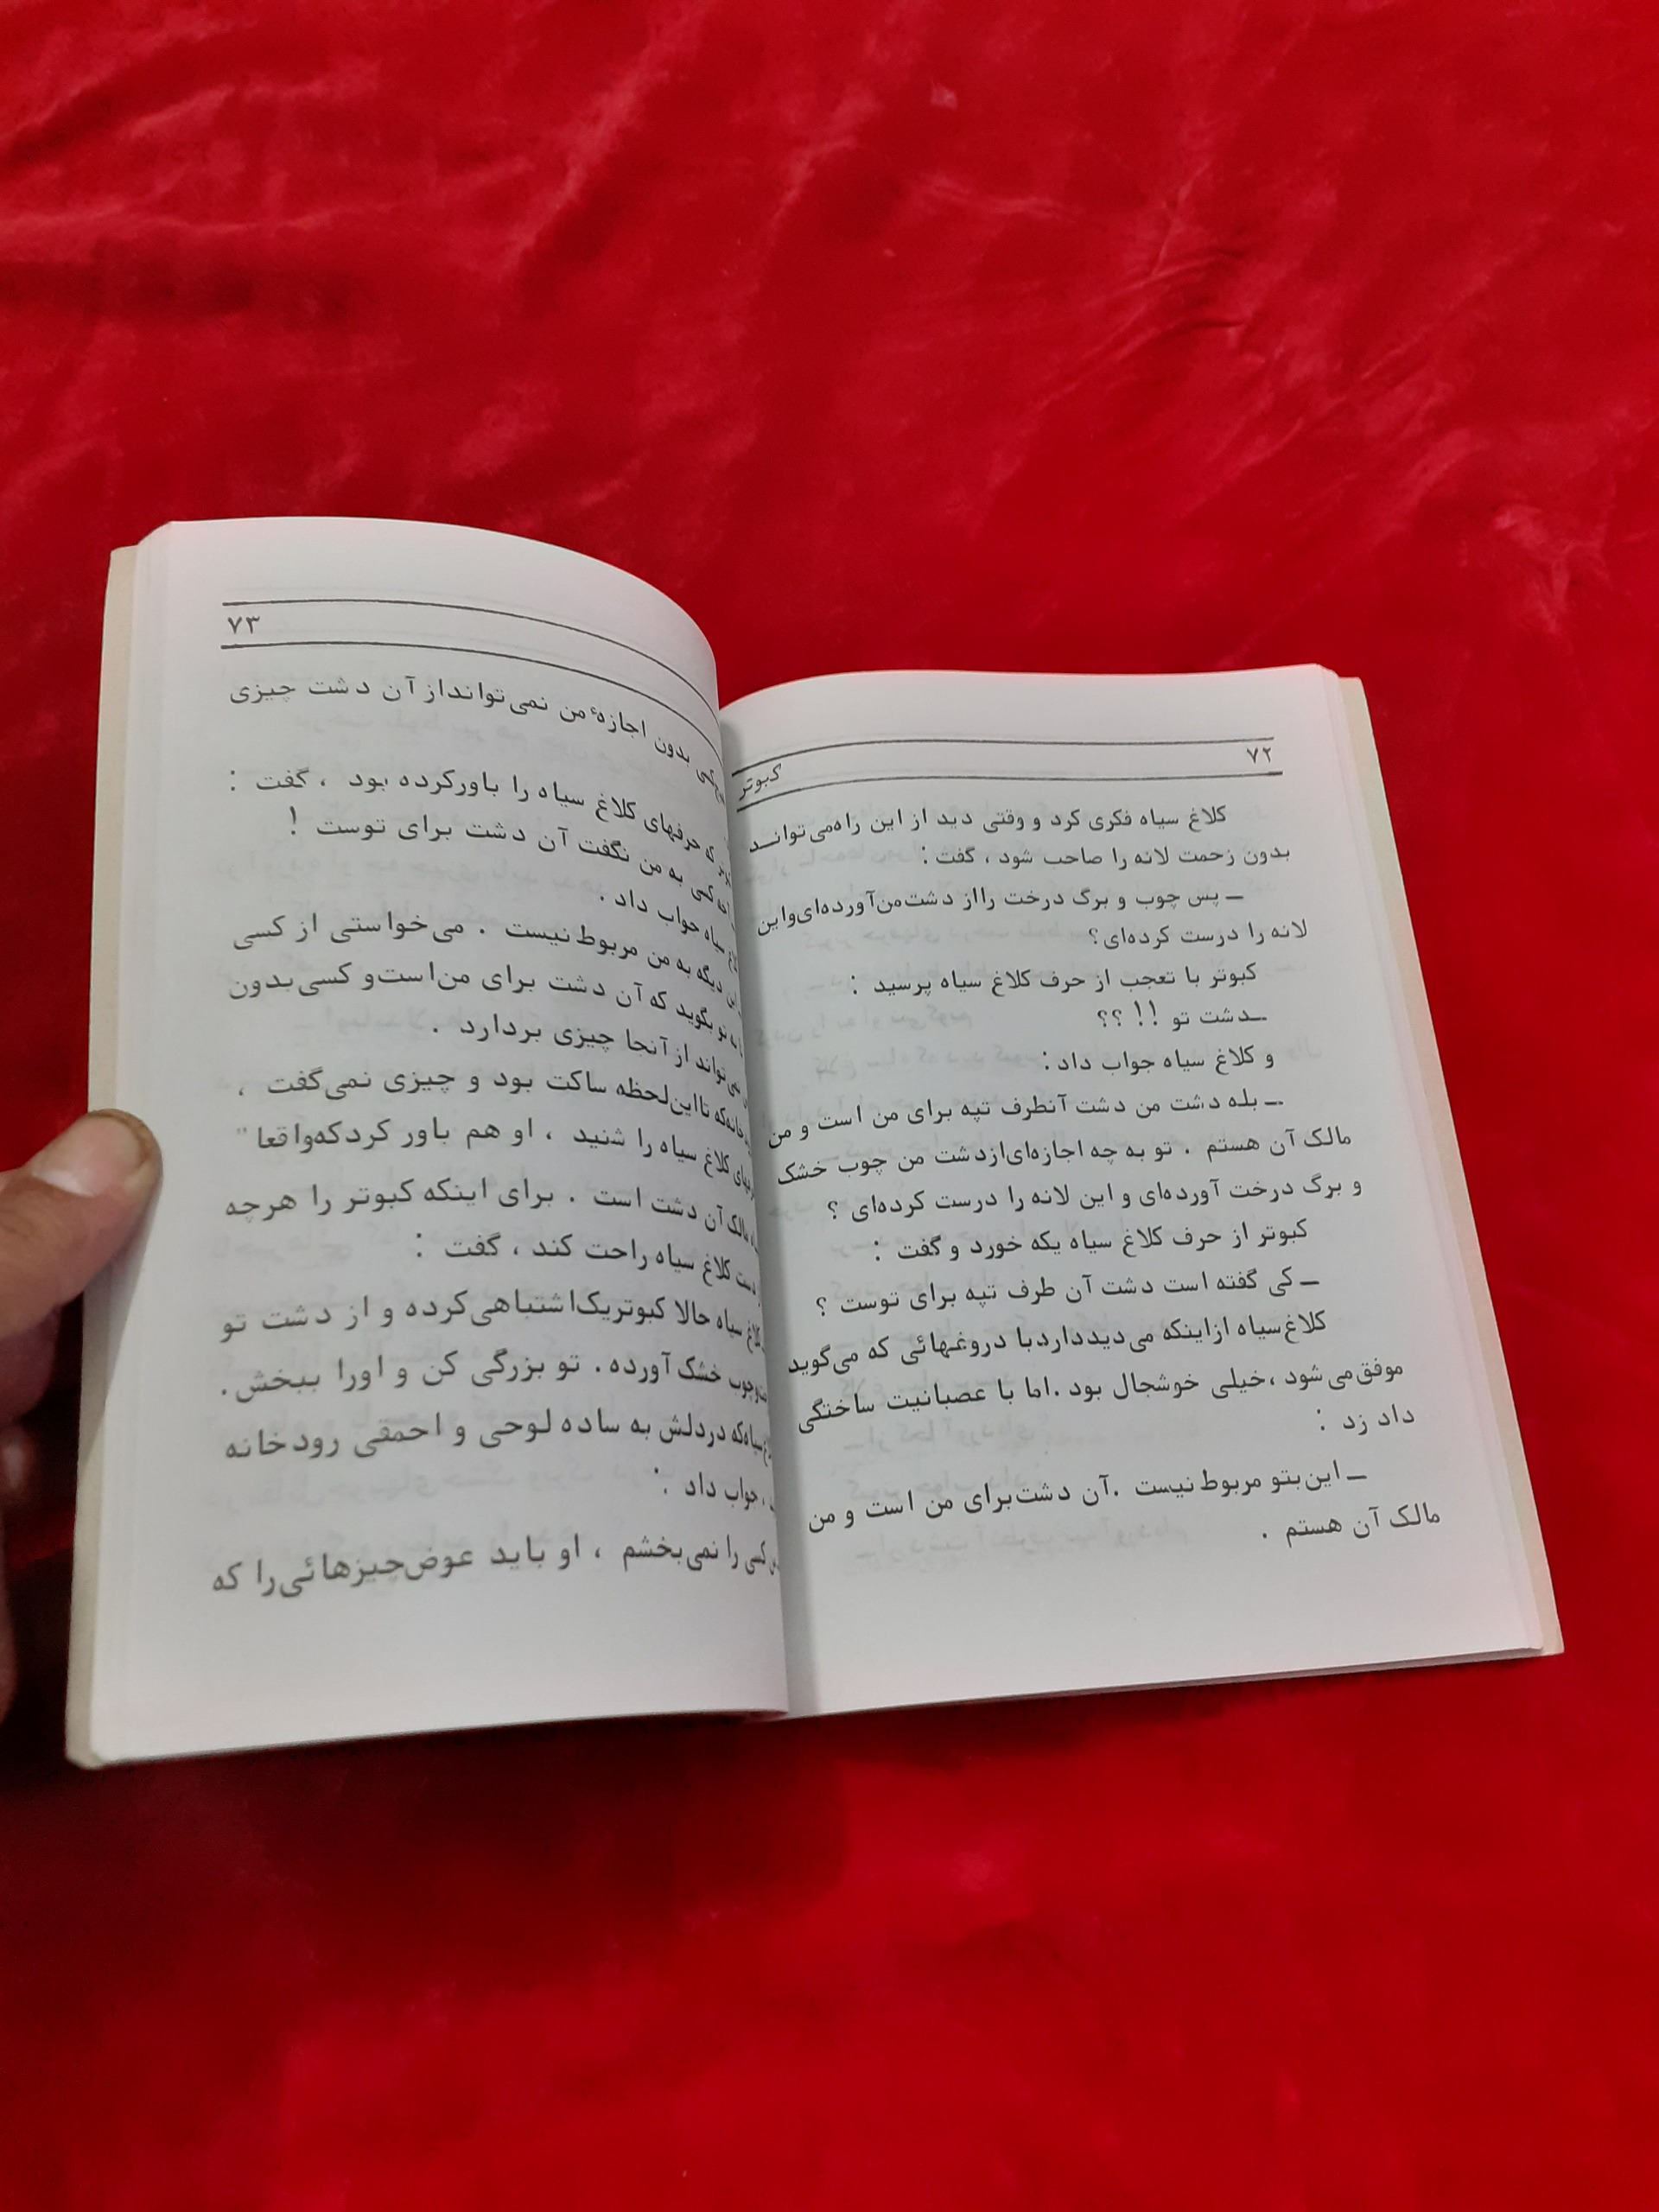 ۷۲
کبوتر
کلاغ سیاه فکری کرد و وقتی دید از این راه‌می‌توانـد
بدون زحمت لانه را صاحب شود ، گفت :
ــ پس چوب و برگ درخت رااز دشت‌من‌آورده‌ای‌واین
لانه را درست کرده‌ای؟
کبوتر با تعجب از حرف کلاغ سیاه پرسید :
ــدشت تو !! ؟؟
و کلاغ سیاه جواب داد :
ــ بله دشت من دشت آنطرف تپه برای من است و من
مالک آن هستم . تو به چه اجازه‌ای‌ازدشت من چوب خشک
و برگ درخت آورده‌ای و این لانه را درست کرده‌ای ؟
کبوتر از حرف کلاغ سیاه یکه خورد و گفت :
ــ کی گفته است دشت آن طرف تپه برای توست ؟
کلاغ‌سیاه ازاینکه می‌دیدداردبا دروغهائی که می‌گوید
موفق‌می‌شود ،خیلی خوشجال بود .اما با عصبانیت ساختگی
داد زد :
ــ این‌بتو مربوط‌نیست .آن دشت‌برای من است و من
مالک آن هستم .
۷۳
بدون اجازهٔ من نمی‌تواندازآن دشت چیزی
که حرفهای کلاغ سیاه را باورکرده بود ، گفت :
کی به من نگفت آن دشت برای توست !
سیاه جواب داد .
دیگه به من مربوط‌نیست . می‌خواستی از کسی
تو بگوید که آن دشت برای من‌است‌و کسی‌بدون
تواند ازآنجا چیزی بردارد .
تااین‌لحظه ساکت بود و چیزی نمی‌گفت ،
کلاغ سیاه را شنید ، او هم باور کردکه‌واقعا"
مالک آن دشت است . برای اینکه کبوتر را هرچه
دست کلاغ سیاه راحت کند ، گفت :
سیاه حالا کبوتریک‌اشتباهی‌کرده و از دشت تو
چوب خشک آورده . تو بزرگی کن و اورا ببخش.
دردلش به ساده لوحی و احمقی رودخانه
، جواب داد :
کسی را نمی‌بخشم ، او باید عوض‌چیزهائی‌را که